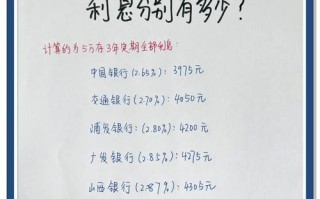 利息分别有多少?
计算的为5万存3年定期全部利息:
中国银行(2.65%): 3975元
交通银行(2.70%): 4050元
浦发银行:(2.80%): 4200元
广发银行(2.85%): 4275元
山西银行(2.87%): 4305元